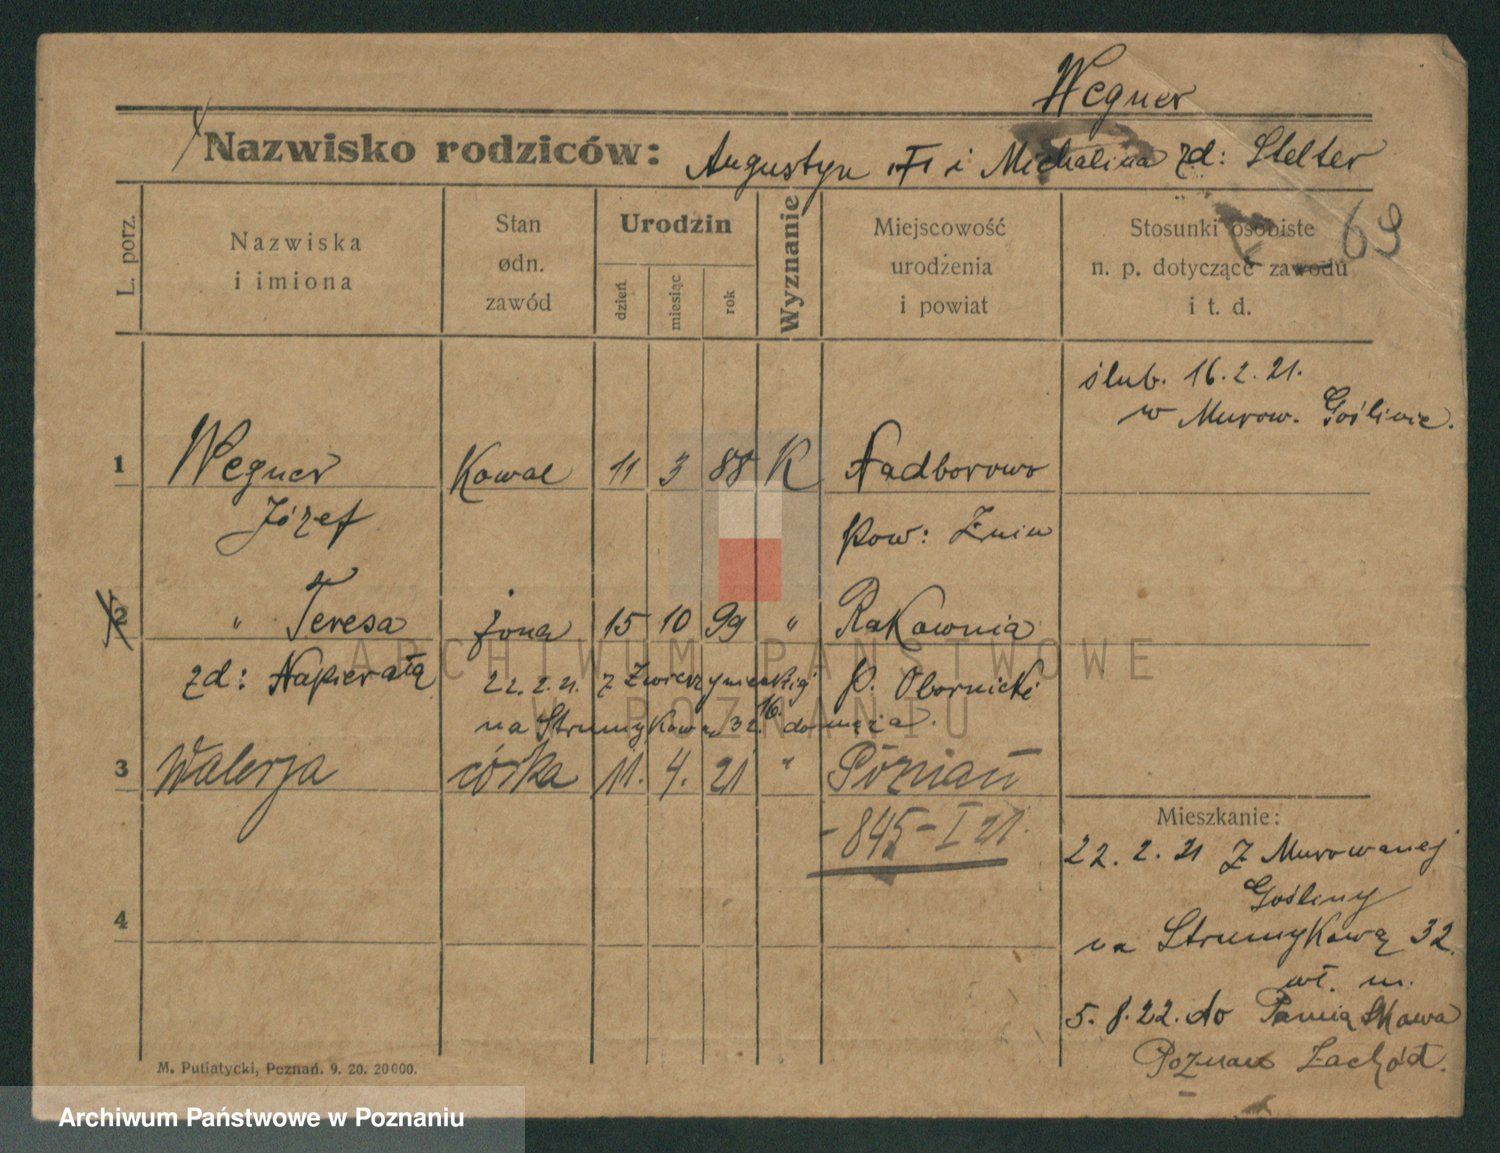 Wegner
Nazwisko rodziców: Augustyn i Michalina zd: Stelter
69
L. porz.
Nazwiska i imiona
Stan ødn. zawód
Urodzin
dzień
miesiąc
rok
Wyznanie
Miejscowość urodzenia i powiat
Stosunki osobiste n. p. dotyczące zawodu i t. d.
ślub. 16. 2. 21.
w Murow. Goślinie.
1 Wegner Kowal 11 3 88 K Nadborowo
Józef pow: Żnin
2 " Teresa żona 15 10 99 " Rakownia
zd: Napierała 22.2.21. z Zwierzynieckiej 16. p. Obornicki
na Strumykową 32. do męża.
3 Walerja córka 11. 4. 21 " Poznań
- 845 - I 21.
4
Mieszkanie:
22. 2. 21 z Murowanej
Gośliny
na Strumykową 32.
wł. m.
5. 8. 22. do Pamiątkowa
Poznań Zachód.
M. Putiatycki, Poznań. 9. 20. 20000.
ARCHIWUM PAŃSTWOWE
W POZNANIU
Archiwum Państwowe w Poznaniu